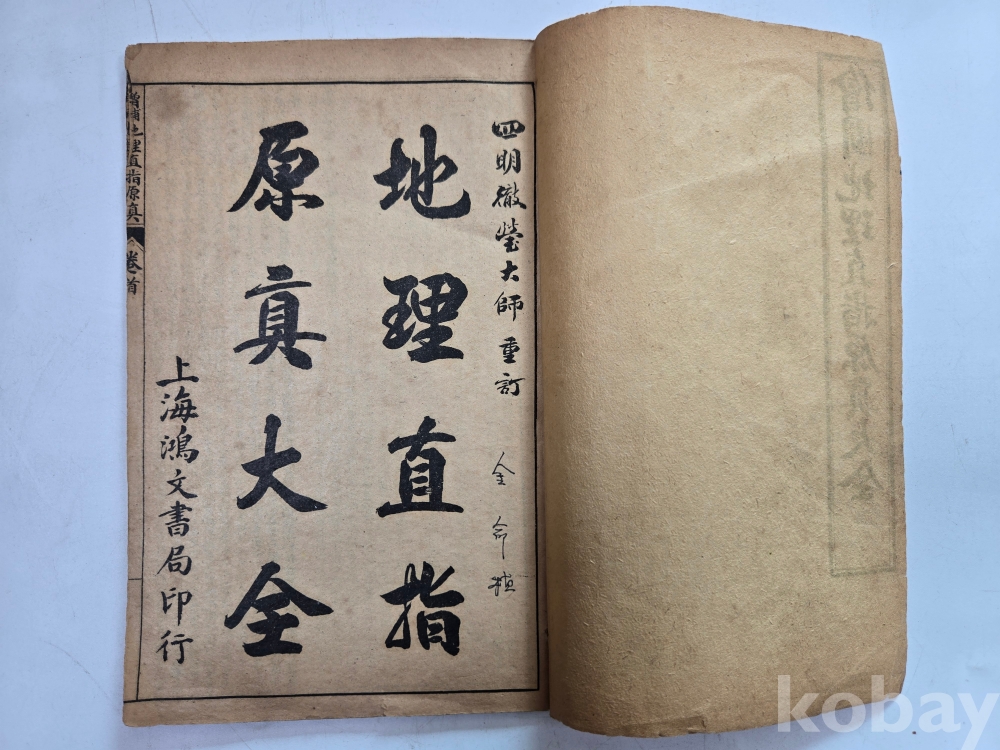 四明徹瑩大師重訂
地理直指
原真大全
上海鴻文書局印行
增補地理直指原真
卷首
kobay